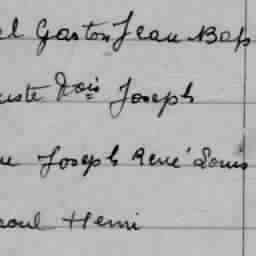 el Gaston Jean Bap
uste Fois Joseph
ue Joseph René Louis
aoul Henri